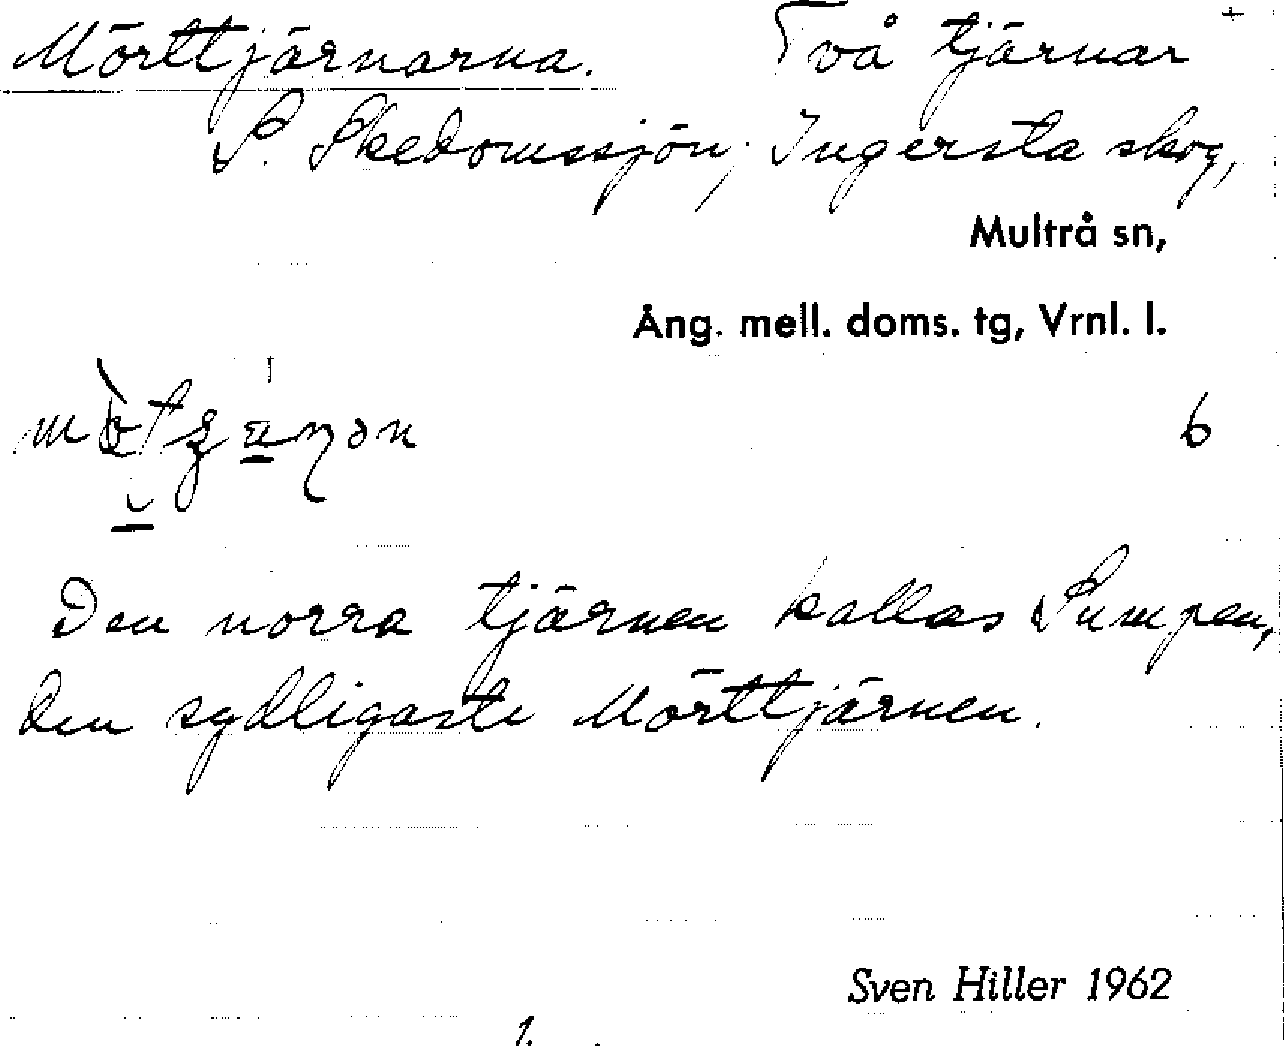 Mörttjärnarna. Två tjärnar +
S. Skedomssjön, Ingersta skog,
Multrå sn,
Ång. mell. doms. tg, Vrnl. l.
6
Den norra tjärnen kallas Pumpen,
den sydligaste Mörttjärnen.
Sven Hiller 1962
1.